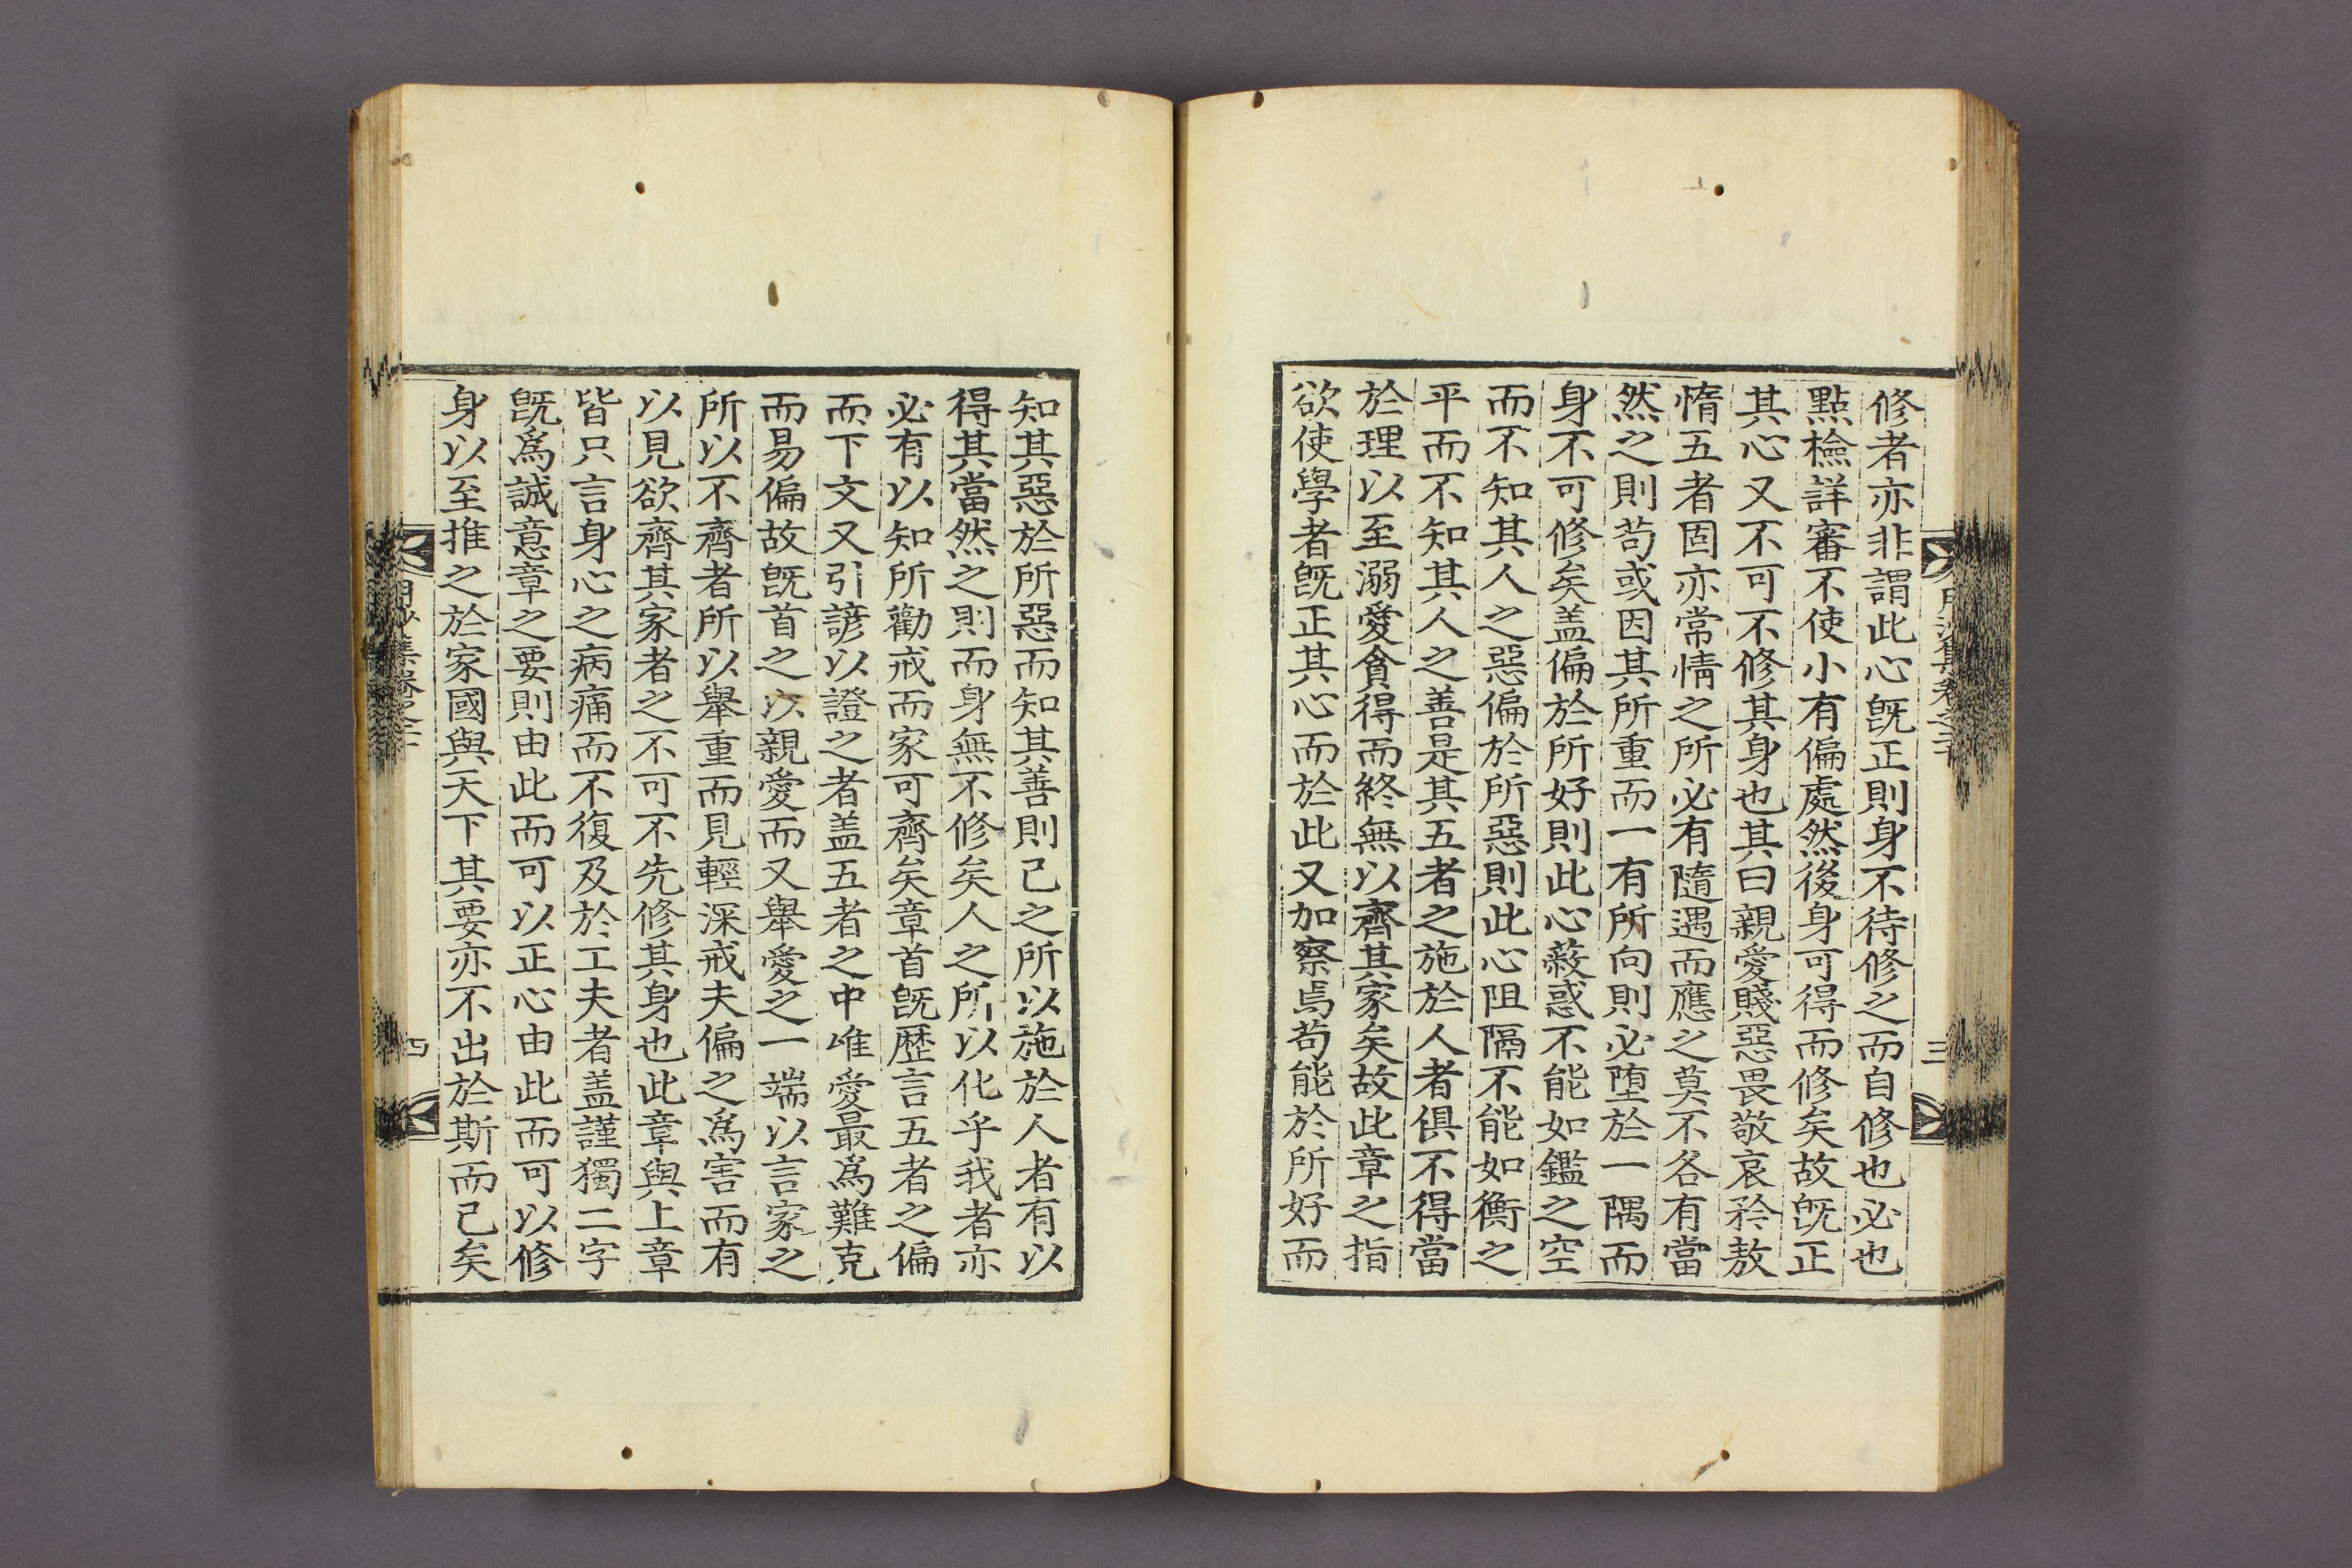 修者亦非謂此心旣正則身不待修之而自修也必也
點檢詳審不使小有偏處然後身可得而修矣故旣正
其心又不可不修其身也其曰親愛賤惡畏敬哀矜敖
惰五者固亦常情之所必有隨遇而應之莫不各有當
然之則苟或因其所重而一有所向則必堕於一隅而
身不可修矣盖偏於所好則此心蔽惑不能如鑑之空
而不知其人之惡偏於所惡則此心阻隔不能如衡之
平而不知其人之善是其五者之施於人者俱不得當
於理以至溺愛貪得而終無以齊其家矣故此章之指
欲使學者旣正其心而於此又加察焉苟能於所好而
知其惡於所惡而知其善則己之所以施於人者有以
得其當然之則而身無不修矣人之所以化乎我者亦
必有以知所勸戒而家可齊矣章首旣歷言五者之偏
而下文又引諺以證之者盖五者之中唯愛最爲難克
而易偏故旣首之以親愛而又舉愛之一端以言家之
所以不齊者所以舉重而見輕深戒夫偏之爲害而有
以見欲齊其家者之不可不先修其身也此章與上章
皆只言身心之病痛而不復及於工夫者盖謹獨二字
旣爲誠意章之要則由此而可以正心由此而可以修
身以至推之於家國與天下其要亦不出於斯而已矣
集卷之
三
集卷之
四